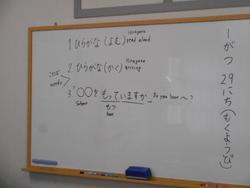 1 ひらがな (よむ) hiragana read aloud
2 ひらがな (かく) hiragana writing
words
3 ○○を もっていますか。 Do you have ~?
subject
もつ
have
1がつ 29にち (もくようび)